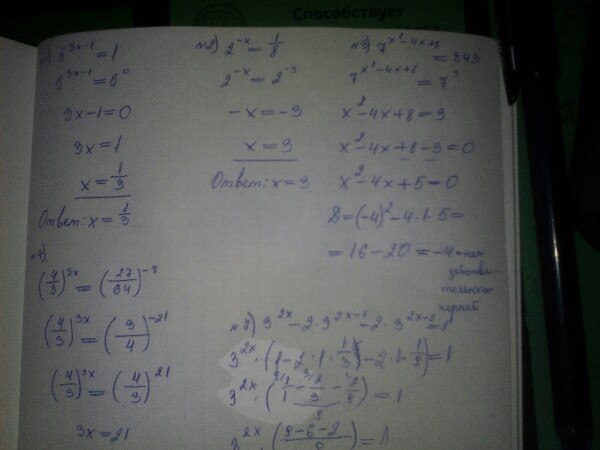 Способствует
№1) 5^{3x-1} = 1
5^{3x-1} = 5^0
3x-1=0
3x=1
x = 1/3
Ответ: x = 1/3.
№2) 2^{-x} = 1/8
2^{-x} = 2^{-3}
-x = -3
x = 3
Ответ: x = 3
№3) 7^{x^2-4x+8} = 343
7^{x^2-4x+8} = 7^3
x^2-4x+8 = 3
x^2-4x+8-3=0
x^2-4x+5=0
D=(-4)^2-4·1·5=
=16-20=-4 - нет
действи-
тельных
корней
№4)
(4/3)^{3x} = (27/64)^{-7}
(4/3)^{3x} = (3/4)^{-21}
(4/3)^{3x} = (4/3)^{21}
3x=21
№7) 3^{2x}-2·3^{2x-1}-2·3^{2x-2}=1
3^{2x}·(1-2·1·1/3-2·1·1/9)=1
3^{2x}·(1/1-2/3-2/9)=1
9
3^{2x}·(9-6-2/9)=1